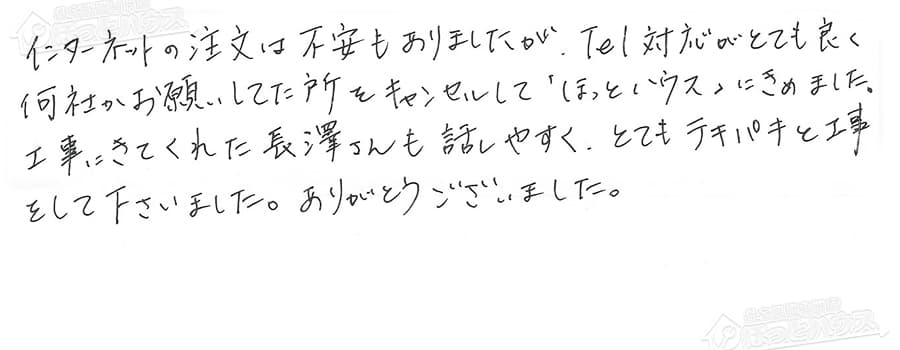 インターネットの注文は不安もありましたが、Tel対応がとても良く
何社かお願いしてた所をキャンセルして「ほっとハウス」にきめました。
工事にきてくれた長澤さんも話しやすく、とてもテキパキと工事
をして下さいました。ありがとうございました。
ほっとハウス